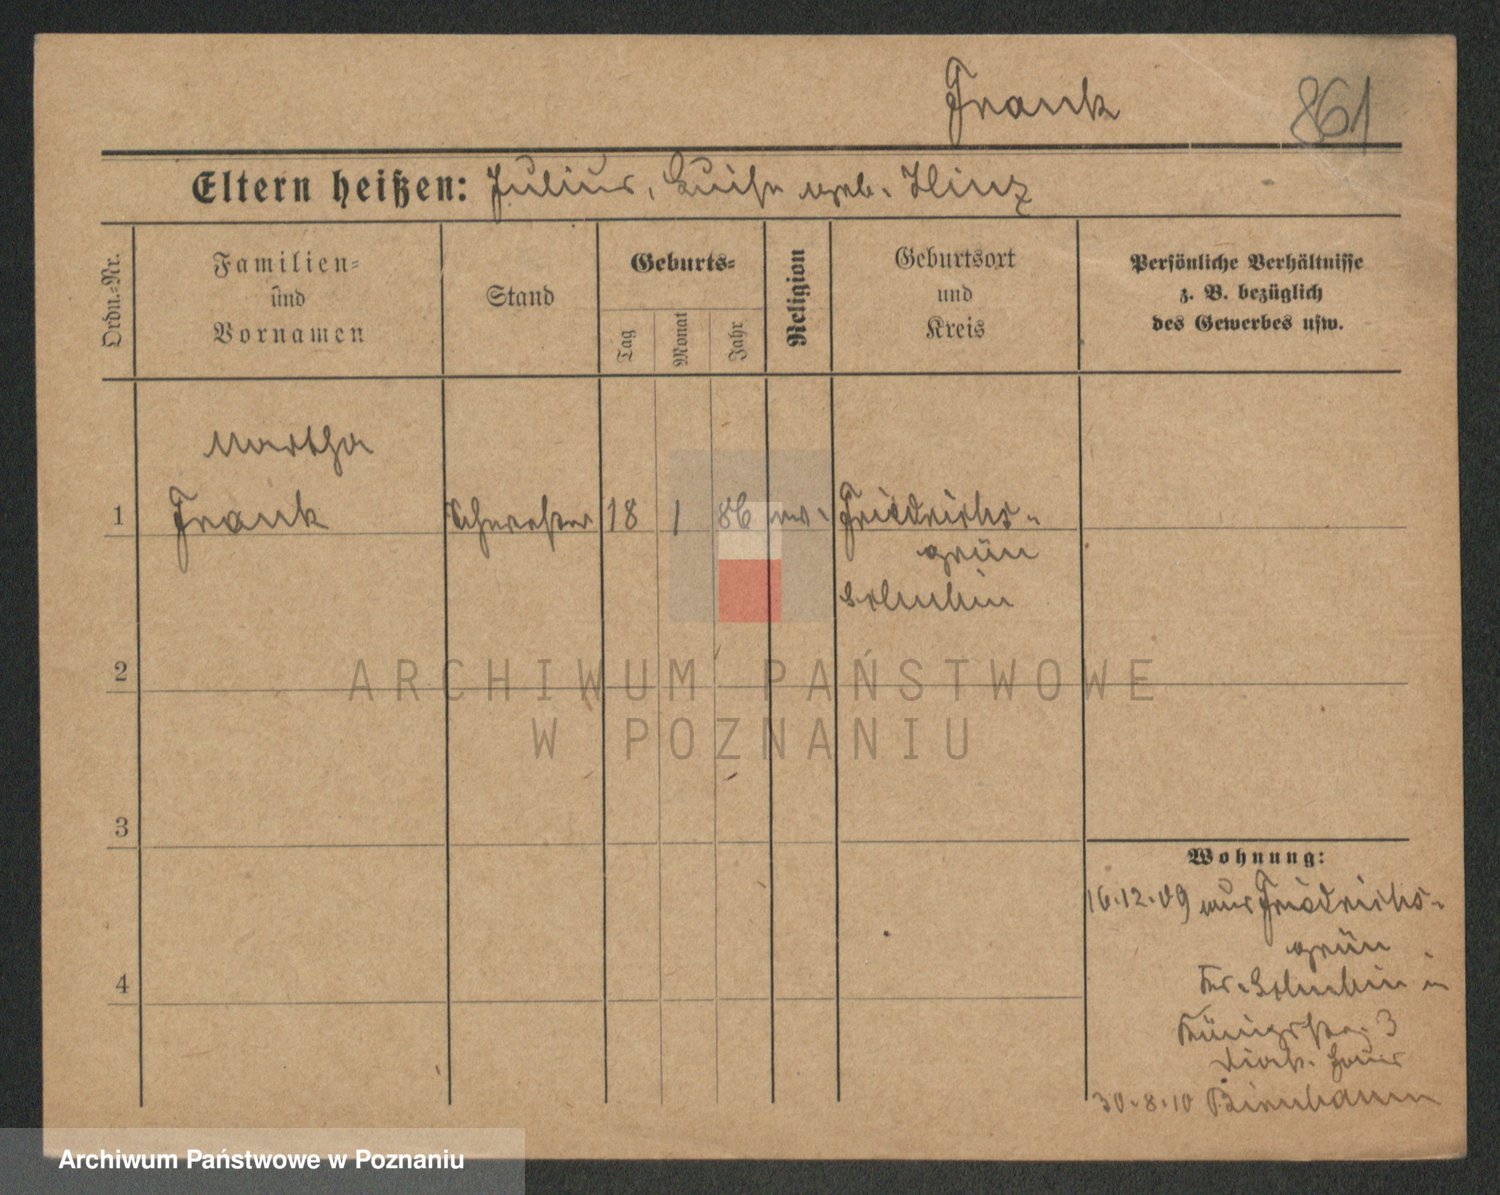 Frank 861
Eltern heißen: Julius, Luise geb. Hinz
Ordn.-Nr.
Familien-
und
Vornamen
Stand
Geburts-
Tag
Monat
Jahr
Religion
Geburtsort
und
Kreis
Persönliche Verhältnisse
z. B. bezüglich
des Gewerbes usw.
Martha
1 Frank Schwester 18 1 86 ev. Friedrichs-
grün
2
3
4
Wohnung:
16.12.09 aus Friedrichs-
grün
Kr.
Königstr. 3
Diak. Haus
30.8.10 Birnbaum
ARCHIWUM PAŃSTWOWE
W POZNANIU
Archiwum Państwowe w Poznaniu